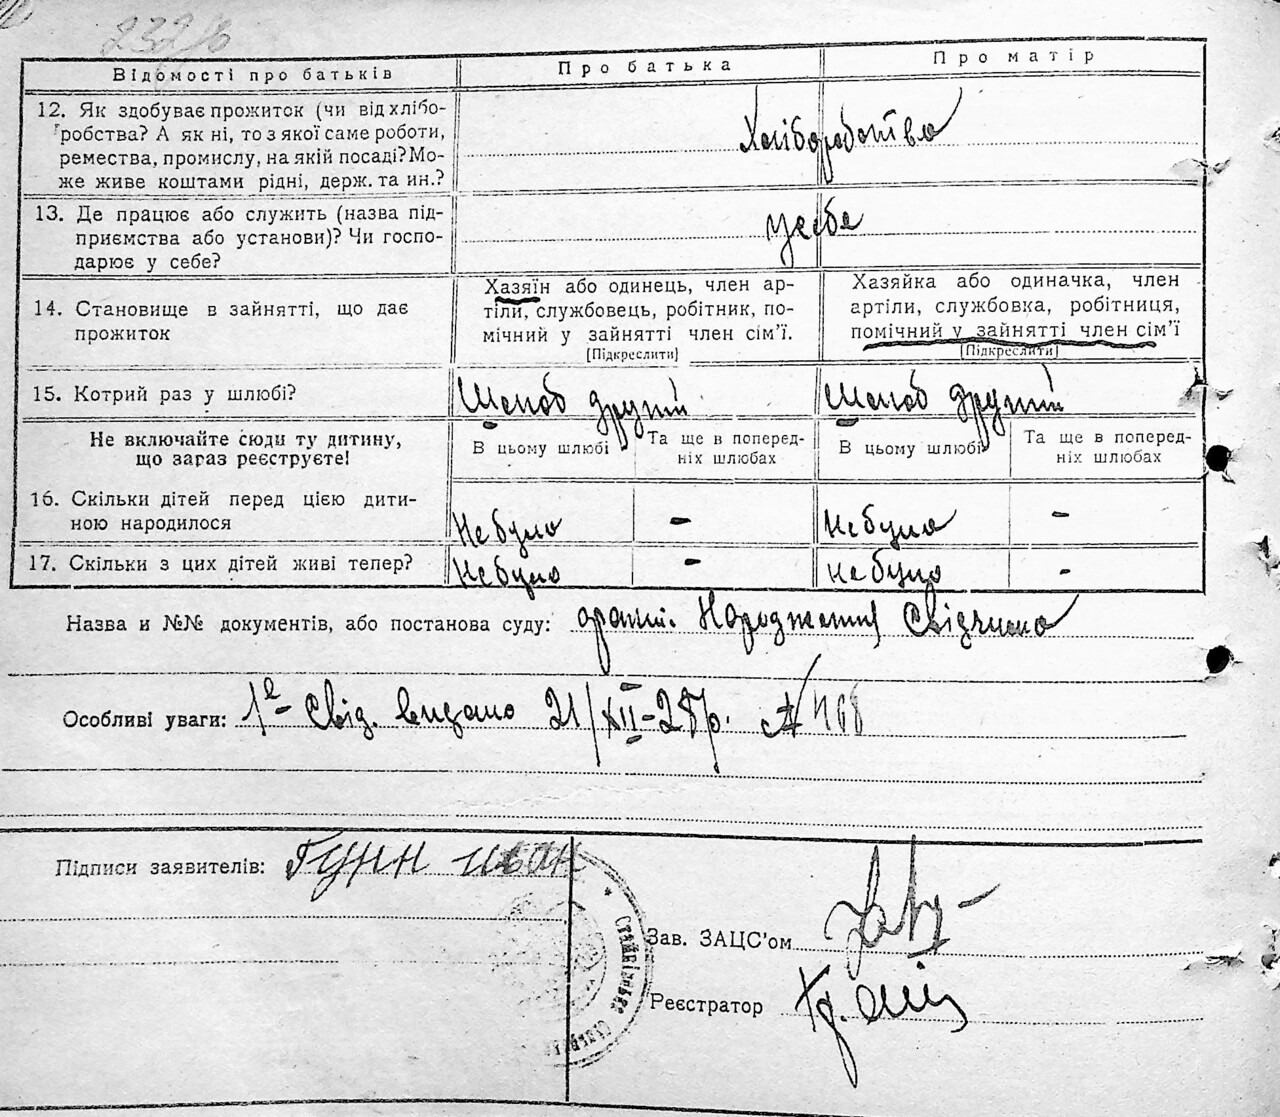 232/б
Відомості про батьків Про батька Про матір
12. Як здобуває прожиток (чи від хлібо-
робства? А як ні, то з якої саме роботи,
ремества, промислу, на якій посаді? Мо-
же живе коштами рідні, держ. та ин.?
Хліборобство
13. Де працює або служить (назва під-
приємства або установи)? Чи госпо-
дарює у себе?
у себе
14. Становище в зайнятті, що дає
прожиток
Хазяїн або одинець, член ар-
тіли, службовець, робітник, по-
мічний у зайнятті член сім'ї.
(Підкреслити)
Хазяйка або одиначка, член
артіли, службовка, робітниця,
помічний у зайнятті член сім'ї
(Підкреслити)
15. Котрий раз у шлюбі? Шлюб другий Шлюб другий
Не включайте сюди ту дитину,
що зараз реєструєте!
В цьому шлюбі
Та ще в поперед-
ніх шлюбах
В цьому шлюбі
Та ще в поперед-
ніх шлюбах
16. Скільки дітей перед цією дити-
ною народилося
Не було - Не було -
17. Скільки з цих дітей живі тепер? Не було - не було -
Назва и №№ документів, або постанова суду: Народження Свідчило
Особливі уваги: 1е Свід. видано 21/XII-28р. № 468
Підписи заявителів: Гурн иван
Зав. ЗАЦС'ом
Реєстратор